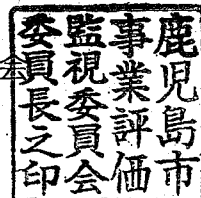 鹿児島市
事業評価
監視委員会
委員長之印
会